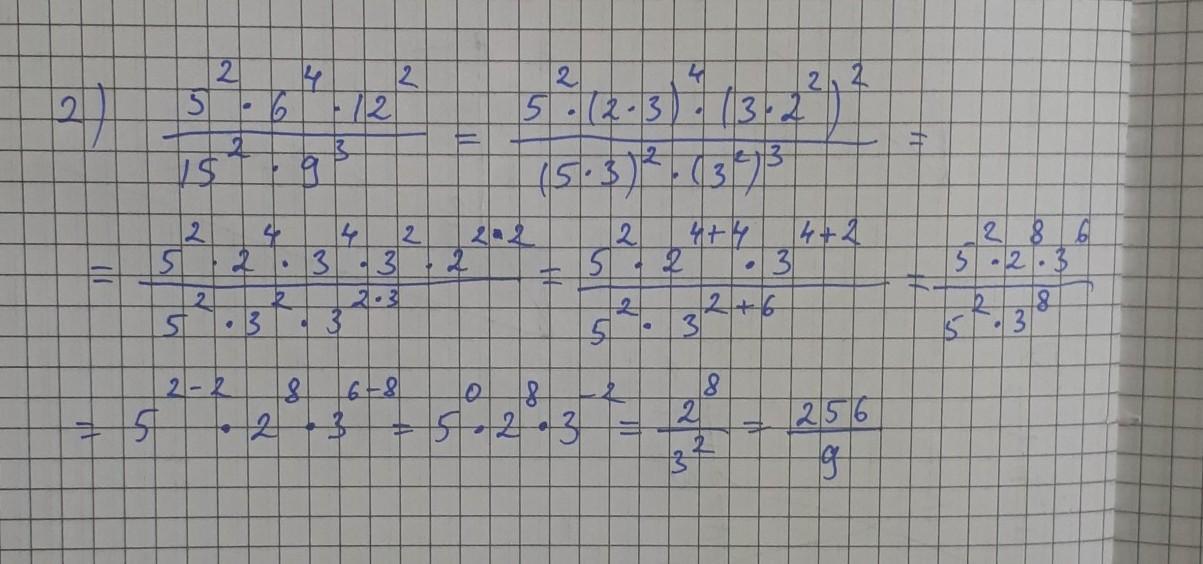 2) (5² · 6⁴ · 12²)/(15² · 9³) = (5² · (2·3)⁴ · (3·2²)²)/((5·3)² · (3²)³) =
= (5² · 2⁴ · 3⁴ · 3² · 2^(2·2))/(5² · 3² · 3^(2·3)) = (5² · 2^(4+4) · 3^(4+2))/(5² · 3^(2+6)) = (5² · 2⁸ · 3⁶)/(5² · 3⁸)
= 5^(2-2) · 2⁸ · 3^(6-8) = 5⁰ · 2⁸ · 3⁻² = 2⁸/3² = 256/9